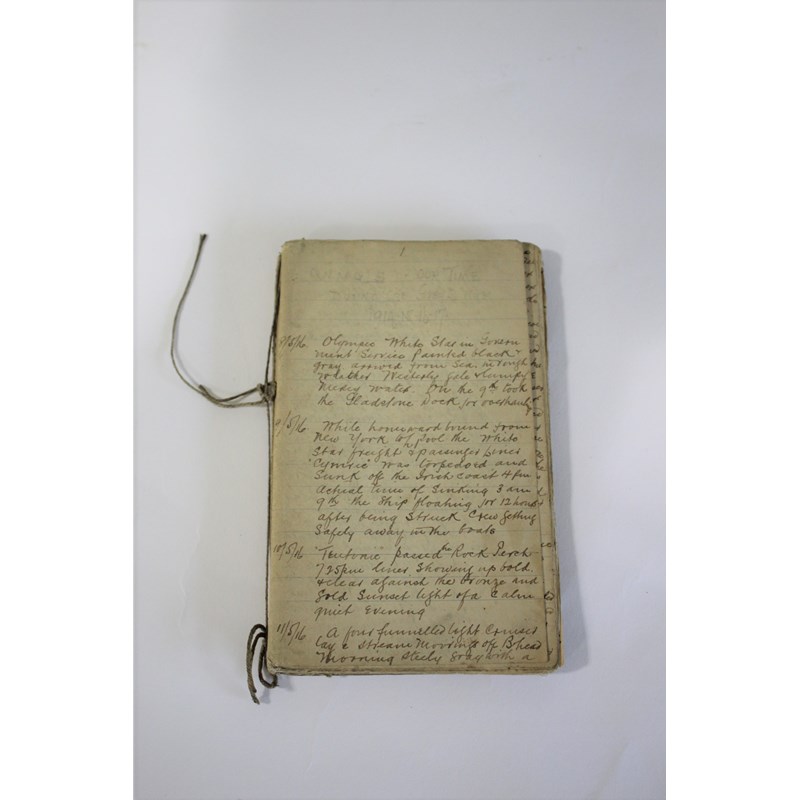 1
OUR TIME
8/5/16 Olympic White Star in Govern
ment Service painted black &
gray arrived from Sea, in rough
weather Westerly Gale & lumpy
Mersey water. On the 9th took
the Gladstone Dock for overhaul
9/5/16 While homeward bound from
New York to L'pool the White
Star freight & passenger Liner
"Cymric" was torpedoed and
Sunk off the Irish Coast 4 pm
actual time of Sinking 3 am
9th the Ship floating for 12 hours
after being Struck Crew getting
Safely away in the boats
10/5/16 "Teutonic" passed the Rock Perch
7.25pm lines Showing up bold
& clear against the bronze and
gold Sunset light of a Calm
quiet Evening
11/5/16 A four funnelled light Cruiser
lay a stream Moorings off B'head
Morning Steely Gray with a